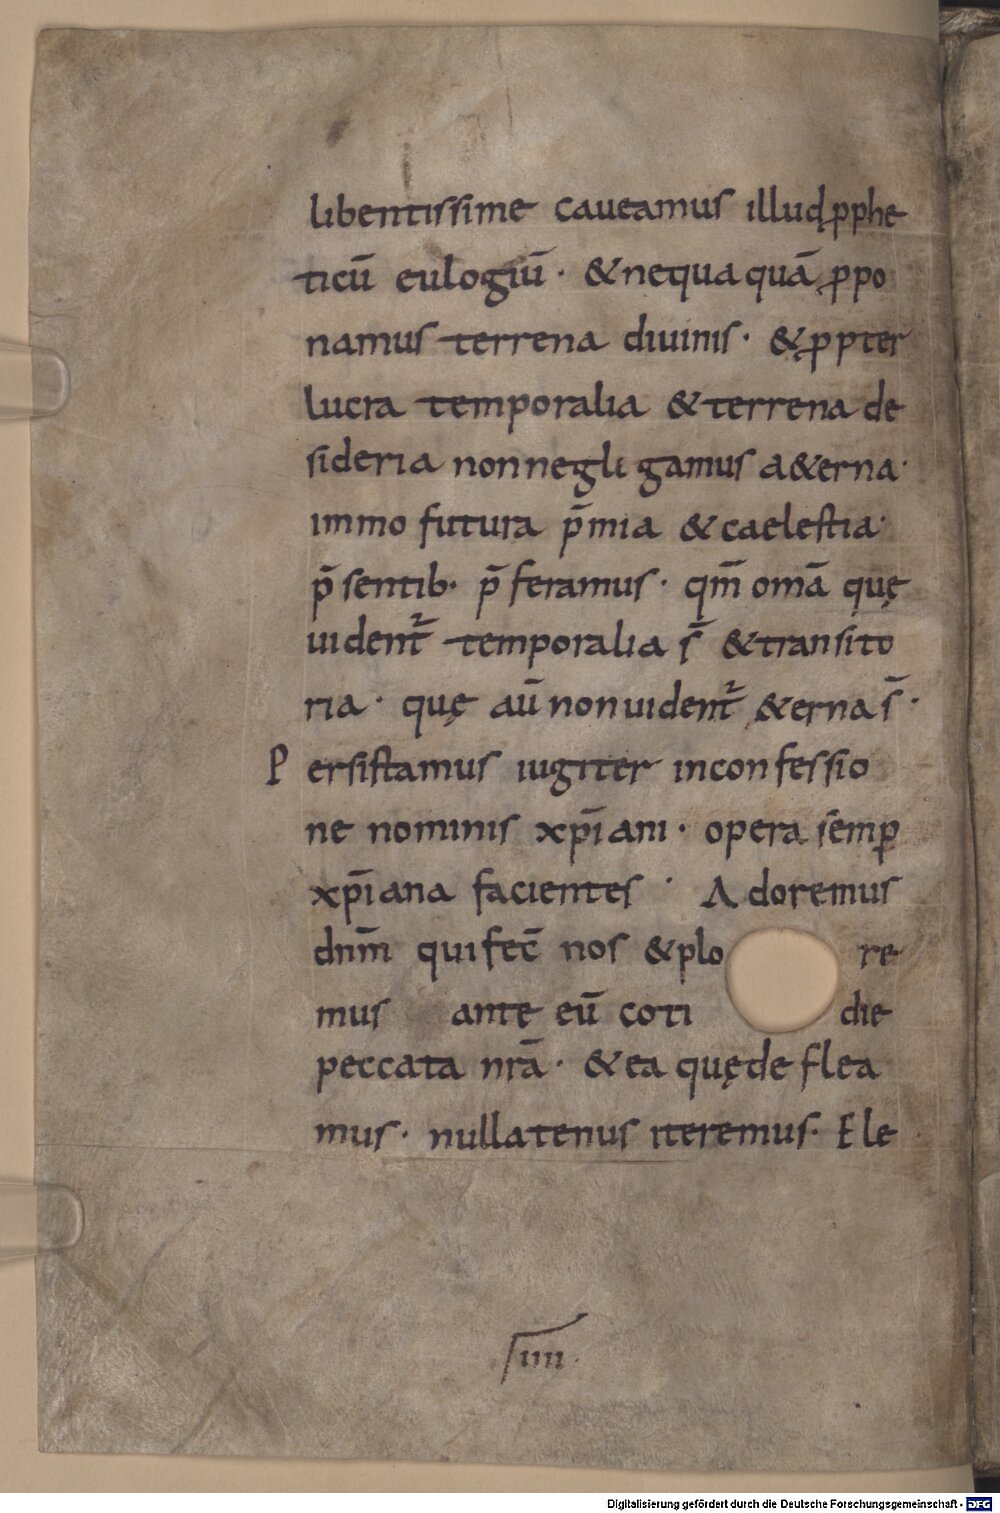 libentissime caueamus illud ꝓphe
ticū eulogiū · & nequaquā ꝓpo
namus terrena diuinis · & ꝓpter
lucra temporalia & terrena de
sideria non neglegamus a&erna ·
immo futura p̄mia & caelestia ·
p̄sentib· p̄feramus · qm̄ omā quę
uident᷑ temporalia s̄ & transito
ria · quę aū non uident᷑ &erna s̄ ·
Persistamus iugiter in confessio
ne nominis xp̄iani · opera semꝑ
xp̄iana facientes · Adoremus
dnm̄ qui fec̄ nos & plo re
mus ante eū coti die
peccata nrā · & ea quę deflea
mus · nullatenus iteremus · Ele
IIII
Digitalisierung gefördert durch die Deutsche Forschungsgemeinschaft - DFG